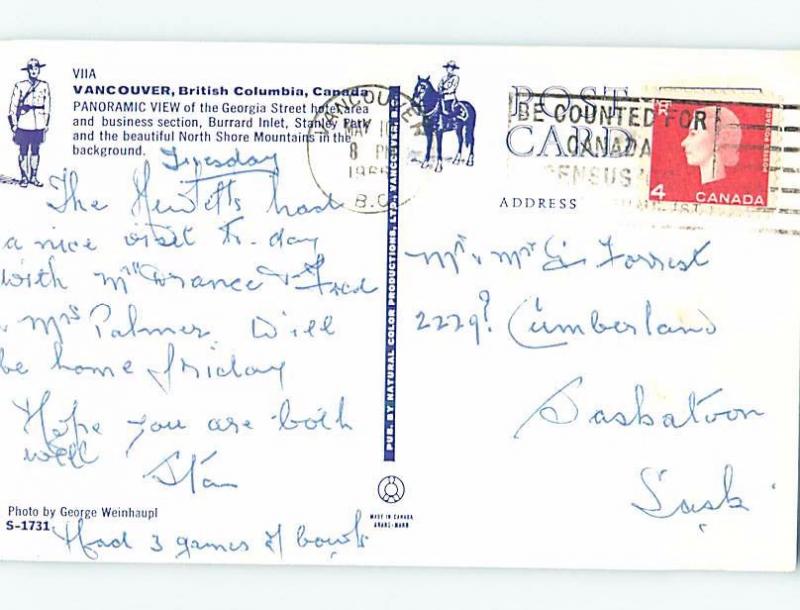 VIIA
VANCOUVER, British Columbia, Canada
PANORAMIC VIEW of the Georgia Street hotel area
and business section, Burrard Inlet, Stanley Park
and the beautiful North Shore Mountains in the
background.
Tuesday
The Hewitts had
a nice visit to-day
with Mr France & Fred
& Mrs Palmer. Will
be home friday
Hope you are both
well Stan
Photo by George Weinhaupl
S-1731
Had 3 games of bowls
PUB. BY NATURAL COLOR PRODUCTIONS, LTD., VANCOUVER, B.C.
MADE IN CANADA
VANCOUVER
MAY 10
8 PM
1966
B.C.
POST
CARD
ADDRESS
BE COUNTED FOR
CANADA
CENSUS
JUNE 1ST
4 CANADA
POSTES POSTAGE
Mr & Mrs Forrest
2229? Cumberland
Saskatoon
Sask